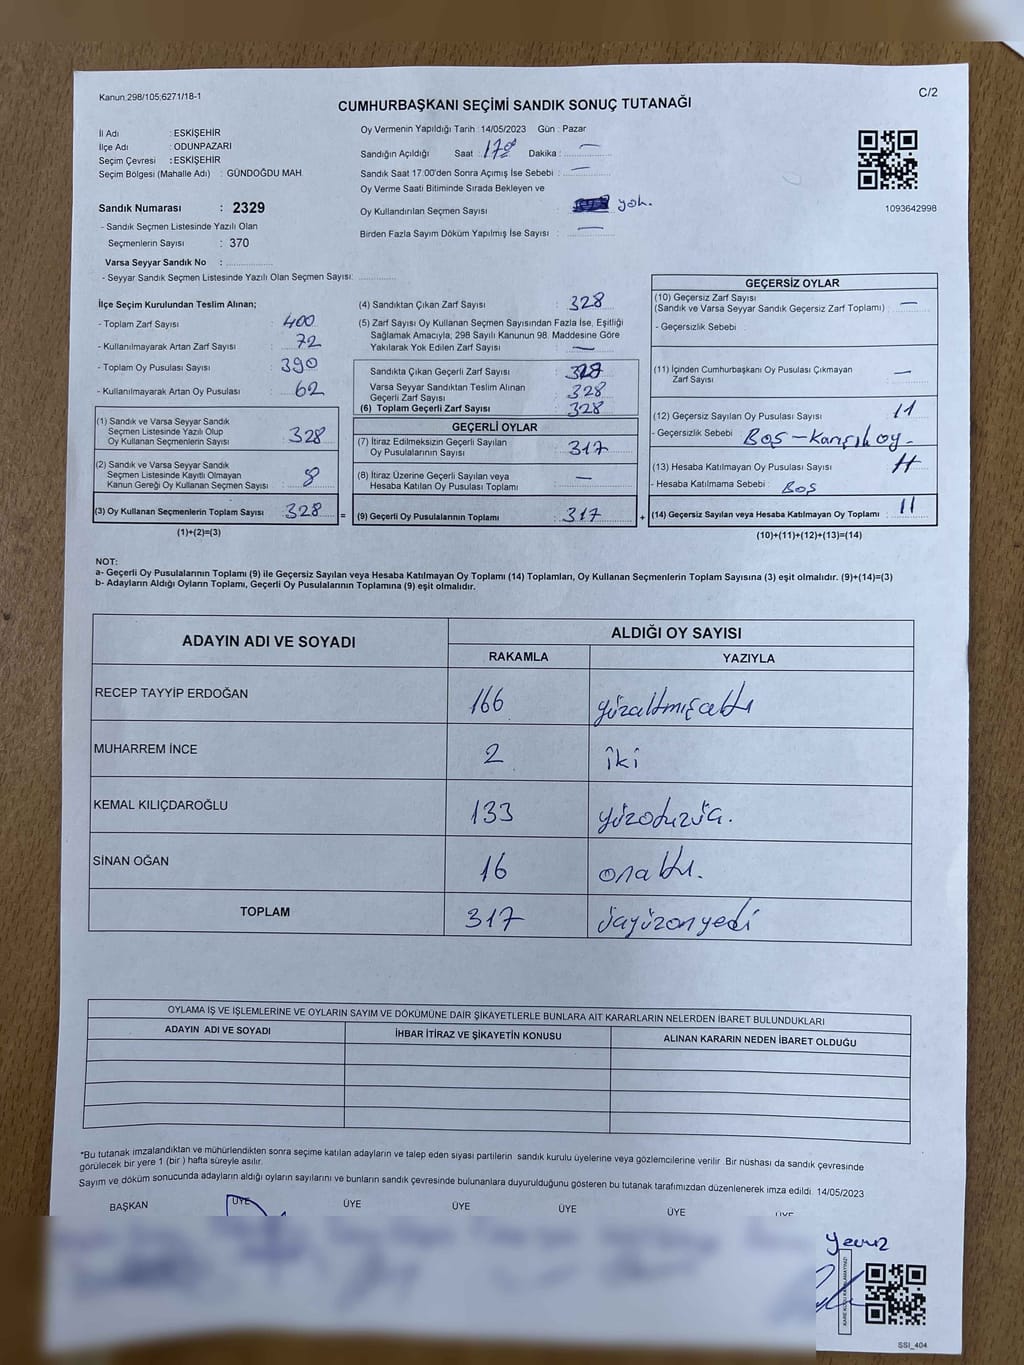 Kanun 298/105;6271/18-1
C/2
CUMHURBAŞKANI SEÇİMİ SANDIK SONUÇ TUTANAĞI
İl Adı : ESKİŞEHİR
İlçe Adı : ODUNPAZARI
Seçim Çevresi : ESKİŞEHİR
Seçim Bölgesi (Mahalle Adı) : GÜNDOĞDU MAH.
Sandık Numarası : 2329
- Sandık Seçmen Listesinde Yazılı Olan
Seçmenlerin Sayısı : 370
Varsa Seyyar Sandık No :
- Seyyar Sandık Seçmen Listesinde Yazılı Olan Seçmen Sayısı:
Oy Vermenin Yapıldığı Tarih : 14/05/2023 Gün : Pazar
Sandığın Açıldığı Saat : 17 Dakika : —
Sandık Saat 17:00'den Sonra Açımış İse Sebebi : —
Oy Verme Saati Bitiminde Sırada Bekleyen ve
Oy Kullandırılan Seçmen Sayısı : yok.
Birden Fazla Sayım Döküm Yapılmış İse Sayısı : —
1093642998
İlçe Seçim Kurulundan Teslim Alınan;
- Toplam Zarf Sayısı : 400
- Kullanılmayarak Artan Zarf Sayısı : 72
- Toplam Oy Pusulası Sayısı : 390
- Kullanılmayarak Artan Oy Pusulası : 62
(1) Sandık ve Varsa Seyyar Sandık
Seçmen Listesinde Yazılı Olup
Oy Kullanan Seçmenlerin Sayısı : 328
(2) Sandık ve Varsa Seyyar Sandık
Seçmen Listesinde Kayıtlı Olmayan
Kanun Gereği Oy Kullanan Seçmen Sayısı :
(3) Oy Kullanan Seçmenlerin Toplam Sayısı : 328
(1)+(2)=(3)
(4) Sandıktan Çıkan Zarf Sayısı : 328
(5) Zarf Sayısı Oy Kullanan Seçmen Sayısından Fazla İse, Eşitliği
Sağlamak Amacıyla, 298 Sayılı Kanunun 98. Maddesine Göre
Yakılarak Yok Edilen Zarf Sayısı : —
Sandıkta Çıkan Geçerli Zarf Sayısı : 328
Varsa Seyyar Sandıktan Teslim Alınan
Geçerli Zarf Sayısı : 328
(6) Toplam Geçerli Zarf Sayısı : 328
GEÇERLİ OYLAR
(7) İtiraz Edilmeksizin Geçerli Sayılan
Oy Pusulalarının Sayısı : 317
(8) İtiraz Üzerine Geçerli Sayılan veya
Hesaba Katılan Oy Pusulası Toplamı : —
= (9) Geçerli Oy Pusulalarının Toplamı : 317 +
GEÇERSİZ OYLAR
(10) Geçersiz Zarf Sayısı
(Sandık ve Varsa Seyyar Sandık Geçersiz Zarf Toplamı) : —
- Geçersizlik Sebebi :
(11) İçinden Cumhurbaşkanı Oy Pusulası Çıkmayan
Zarf Sayısı : —
(12) Geçersiz Sayılan Oy Pusulası Sayısı : 11
- Geçersizlik Sebebi : Boş - Karışık oy -
(13) Hesaba Katılmayan Oy Pusulası Sayısı :
- Hesaba Katılmama Sebebi : Boş
(14) Geçersiz Sayılan veya Hesaba Katılmayan Oy Toplamı : 11
(10)+(11)+(12)+(13)=(14)
NOT:
a- Geçerli Oy Pusulalarının Toplamı (9) ile Geçersiz Sayılan veya Hesaba Katılmayan Oy Toplamı (14) Toplamları, Oy Kullanan Seçmenlerin Toplam Sayısına (3) eşit olmalıdır. (9)+(14)=(3)
b- Adayların Aldığı Oyların Toplamı, Geçerli Oy Pusulalarının Toplamına (9) eşit olmalıdır.
ADAYIN ADI VE SOYADI ALDIĞI OY SAYISI
RAKAMLA YAZIYLA
RECEP TAYYİP ERDOĞAN 166 yüzaltmışaltı
MUHARREM İNCE 2 iki
KEMAL KILIÇDAROĞLU 133 yüzotuzüç.
SİNAN OĞAN 16 onaltı.
TOPLAM 317 üçyüzonyedi
OYLAMA İŞ VE İŞLEMLERİNE VE OYLARIN SAYIM VE DÖKÜMÜNE DAİR ŞİKAYETLERLE BUNLARA AİT KARARLARIN NELERDEN İBARET BULUNDUKLARI
ADAYIN ADI VE SOYADI İHBAR İTİRAZ VE ŞİKAYETİN KONUSU ALINAN KARARIN NEDEN İBARET OLDUĞU
*Bu tutanak imzalandıktan ve mühürlendikten sonra seçime katılan adayların ve talep eden siyasi partilerin sandık kurulu üyelerine veya gözlemcilerine verilir. Bir nüshası da sandık çevresinde
görülecek bir yere 1 (bir) hafta süreyle asılır.
Sayım ve döküm sonucunda adayların aldığı oyların sayılarını ve bunların sandık çevresinde bulunanlara duyurulduğunu gösteren bu tutanak tarafımızdan düzenlenerek imza edildi. 14/05/2023
BAŞKAN ÜYE ÜYE ÜYE ÜYE ÜYE ÜYE
Yavuz
SSI_404